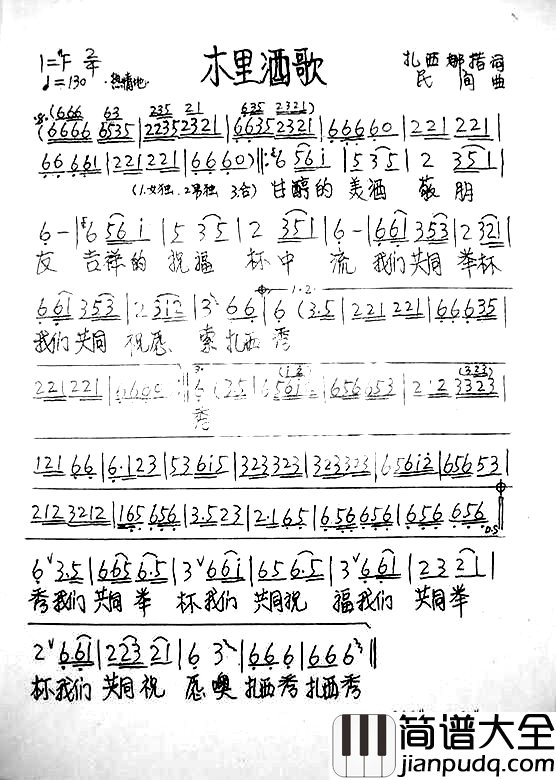 木里酒歌
1=♭B 2/4
♩=130 热情地
扎西娜措词
民间曲
(666 63 235 21 635 2321)
(6666 6535 | 2235 2321 | 6635 2321 | 66660 | 221 221 |
66 661 | 221 221 | 6660) ‖: 6 561 | 5 35 | 2 351 |
(1.女独、2男独 3.合) 甘醇的 美酒 敬朋
6 - | 6 561 | 5 35 | 2 351 | 6 - | 661 353 | 2 321 |
友 吉祥的 祝福 杯中 流 我们共同 举杯
1.2.
661 353 | 2 312 | 3 66 | 6 (3.5 | 221 221 | 66635 |
我们共同 祝愿 索扎西秀
221 221 | 6660 :‖ 3. 6 (3.5 | 6561 | 656 653 | 212 3323 |
秀
121 66 | 6.123 | 53 615 | 323323 | 323323 | 65612 | 656 53 |
212 3212 | 165 656 | 3.523 | 2.165 | 656 656 | 656 656 ‖
D.S
6 3.5 | 665 6.5 | 3 661 | 65 6.5 | 3 661 | 23 21 |
秀我们 共同举 杯我们 共同祝 福我们 共同举
2 6.61 | 223 21 | 6 3 | 666 | 666 ‖
杯我们 共同祝 愿噢 扎西秀 扎西秀
简谱大全
www.jianpudq.com